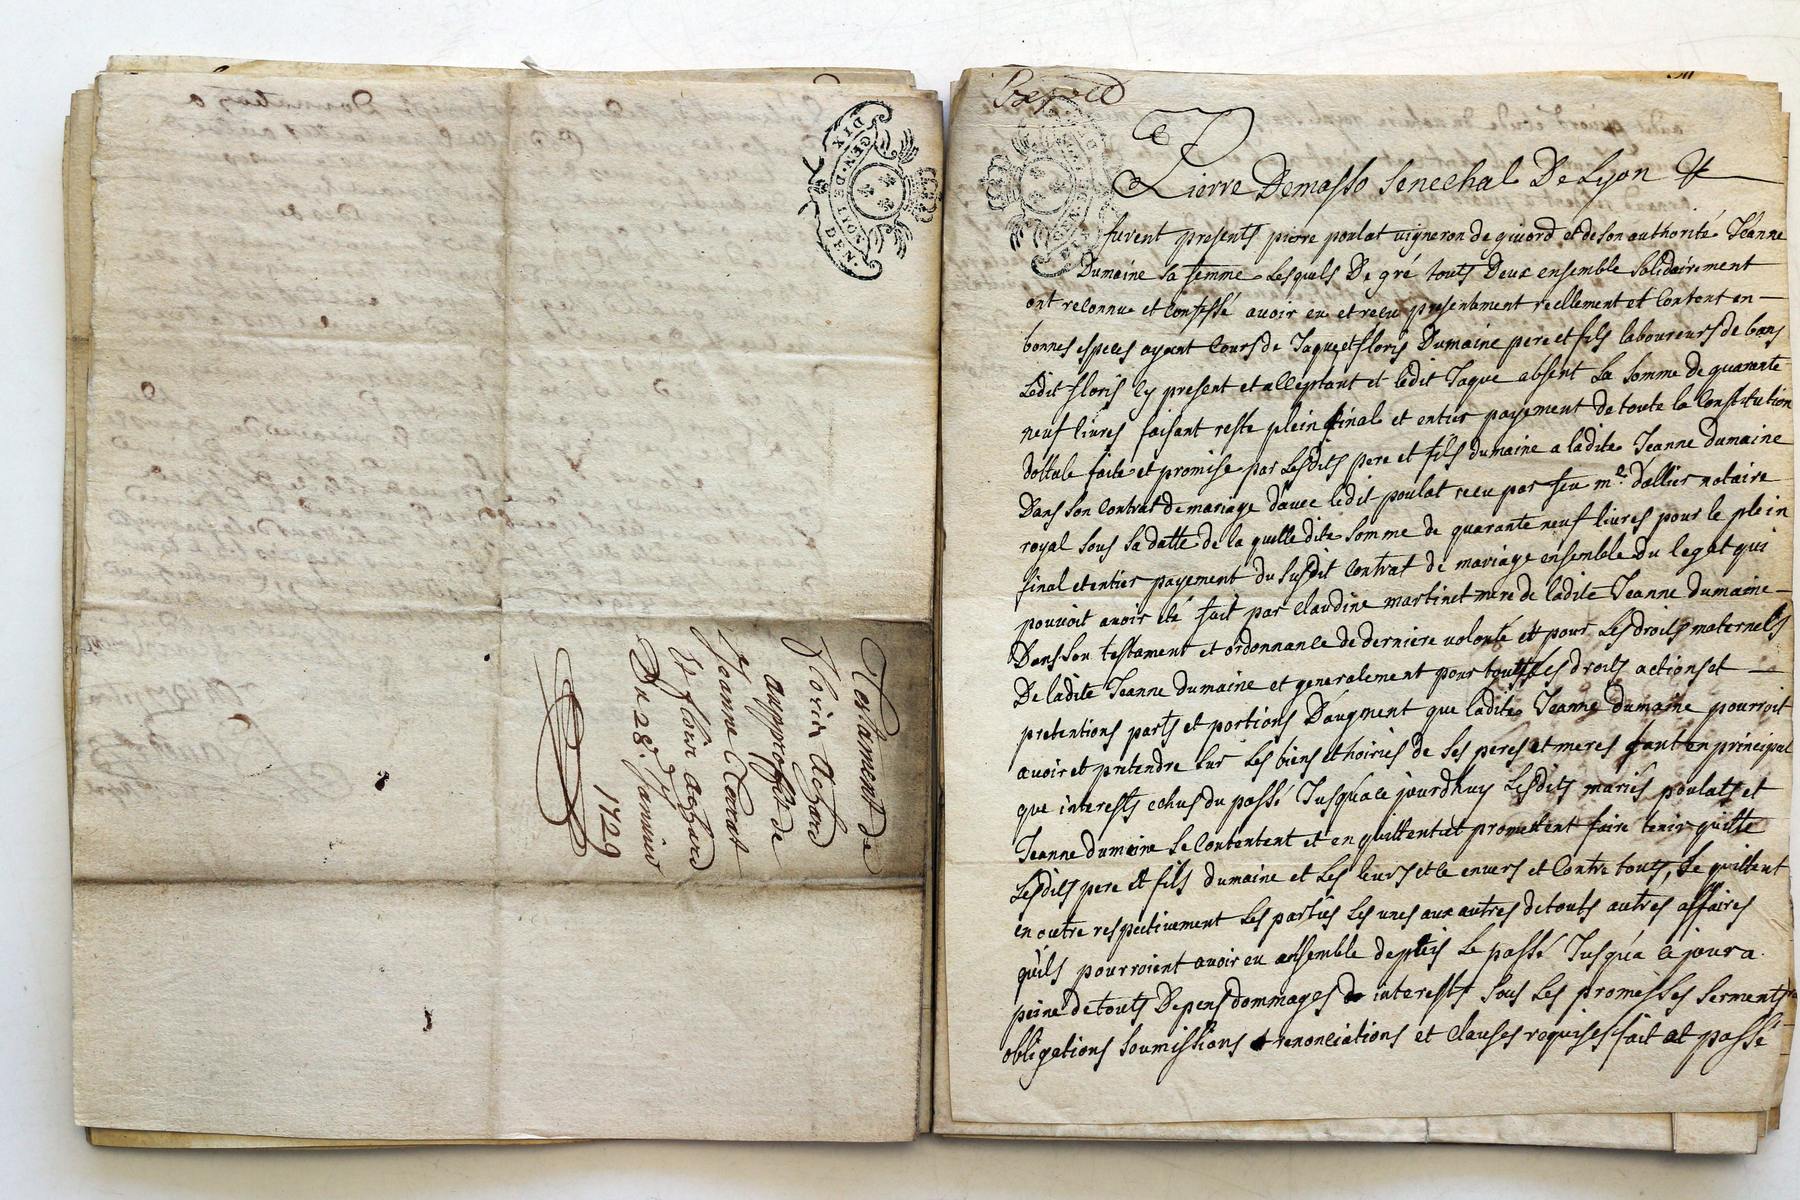 GEN. DE LION
DIX DEN.
Testament de
florin
au proffit de
Jeanne
et florin
Du 28e Janvier
1729
Pierre Demasso Senechal De Lyon
furent presents pierre poulat vigneron de givord et de son authorité Jeanne
Dumaine sa femme Lesquels De gré touts Deux ensemble solidairement
ont reconnu et confessé avoir eu et recu presentement reellement et Contant en
bonnes especes ayant Cours de Jaque et floris Dumaine pere et fils laboureurs de bans
Ledit floris Cy present et acceptant et ledit Jaque absent La somme de quarante
neuf livres faisant reste plein final et entier payement de toute la Constitution
dottale faite et promise par Lesdits pere et fils dumaine a ladite Jeanne dumaine
Dans son Contrat de mariage d'avec ledit poulat recu par feu me. dallier notaire
royal sous sa datte de la quelle dite somme de quarante neuf livres pour le plein
final et entier payement du susdit Contrat de mariage ensemble Du legat qui
pouvoit avoir eté fait par Claudine martinet mere de ladite Jeanne Dumaine
Dans son testament et ordonnance de derniere volonté et pour Les droits maternels
De ladite Jeanne dumaine et generalement pour touts les droits actions et
pretentions parts et portions D'augment que ladite Jeanne dumaine pourroit
avoir et pretendre sur Les biens et hoiries de Ses peres et meres tant en principal
que interests echus du passé Jusqua ce jourdhuy Lesdits mariés poulat et
Jeanne dumaine se Contentent et en quittent et promettent faire tenir quitte
Lesdits pere et fils dumaine et Les leurs et ce envers et Contre touts, Se quittent
en outre respectivement Les parties Les unes aux autres de touts autres affaires
qu'ils pourroient avoir eu ensemble depuis Le passé Jusqu'a ce jour a
peine de touts Depens dommages interests sous Les promesses serments
obligations soumissions renonciations et Clauses requises fait et passé